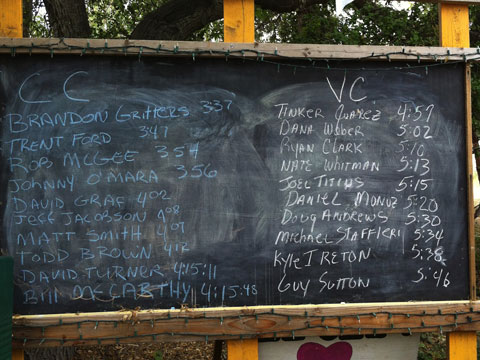 CC
BRANDON GRITTERS 337
TRENT FORD 347
ROB MCGEE 354
JOHNNY O'MARA 356
DAVID GRAF 402
JEFF JACOBSON 408
MATT SMITH 409
TODD BROWN 412
DAVID TURNER 4:15:11
Bill MCCARTHY 4:15:48
VC
TINKER JUAREZ 4:57
DANA WEBER 5:02
RYAN CLARK 5:10
NATE WHITMAN 5:13
JOEL TITIUS 5:15
DANIEL MUNOZ 5:20
DOUG ANDREWS 5:30
MICHAEL STAFFIERI 5:34
KYLE IRETON 5:38
GUY SUTTON 5:46